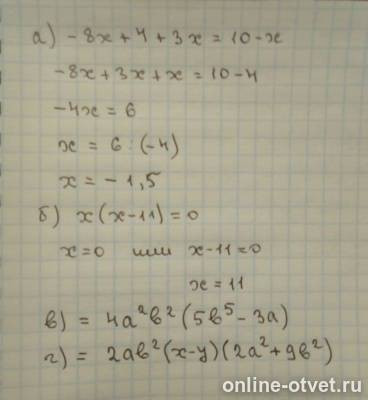 а) -8x + 4 + 3x = 10 - x
-8x + 3x + x = 10 - 4
-4x = 6
x = 6 : (-4)
x = -1,5
б) x(x-11) = 0
x=0 или x-11=0
x = 11
в) = 4a²b²(5b⁵ - 3a)
г) = 2ab²(x-y)(2a² + 9b²)
online-otvet.ru